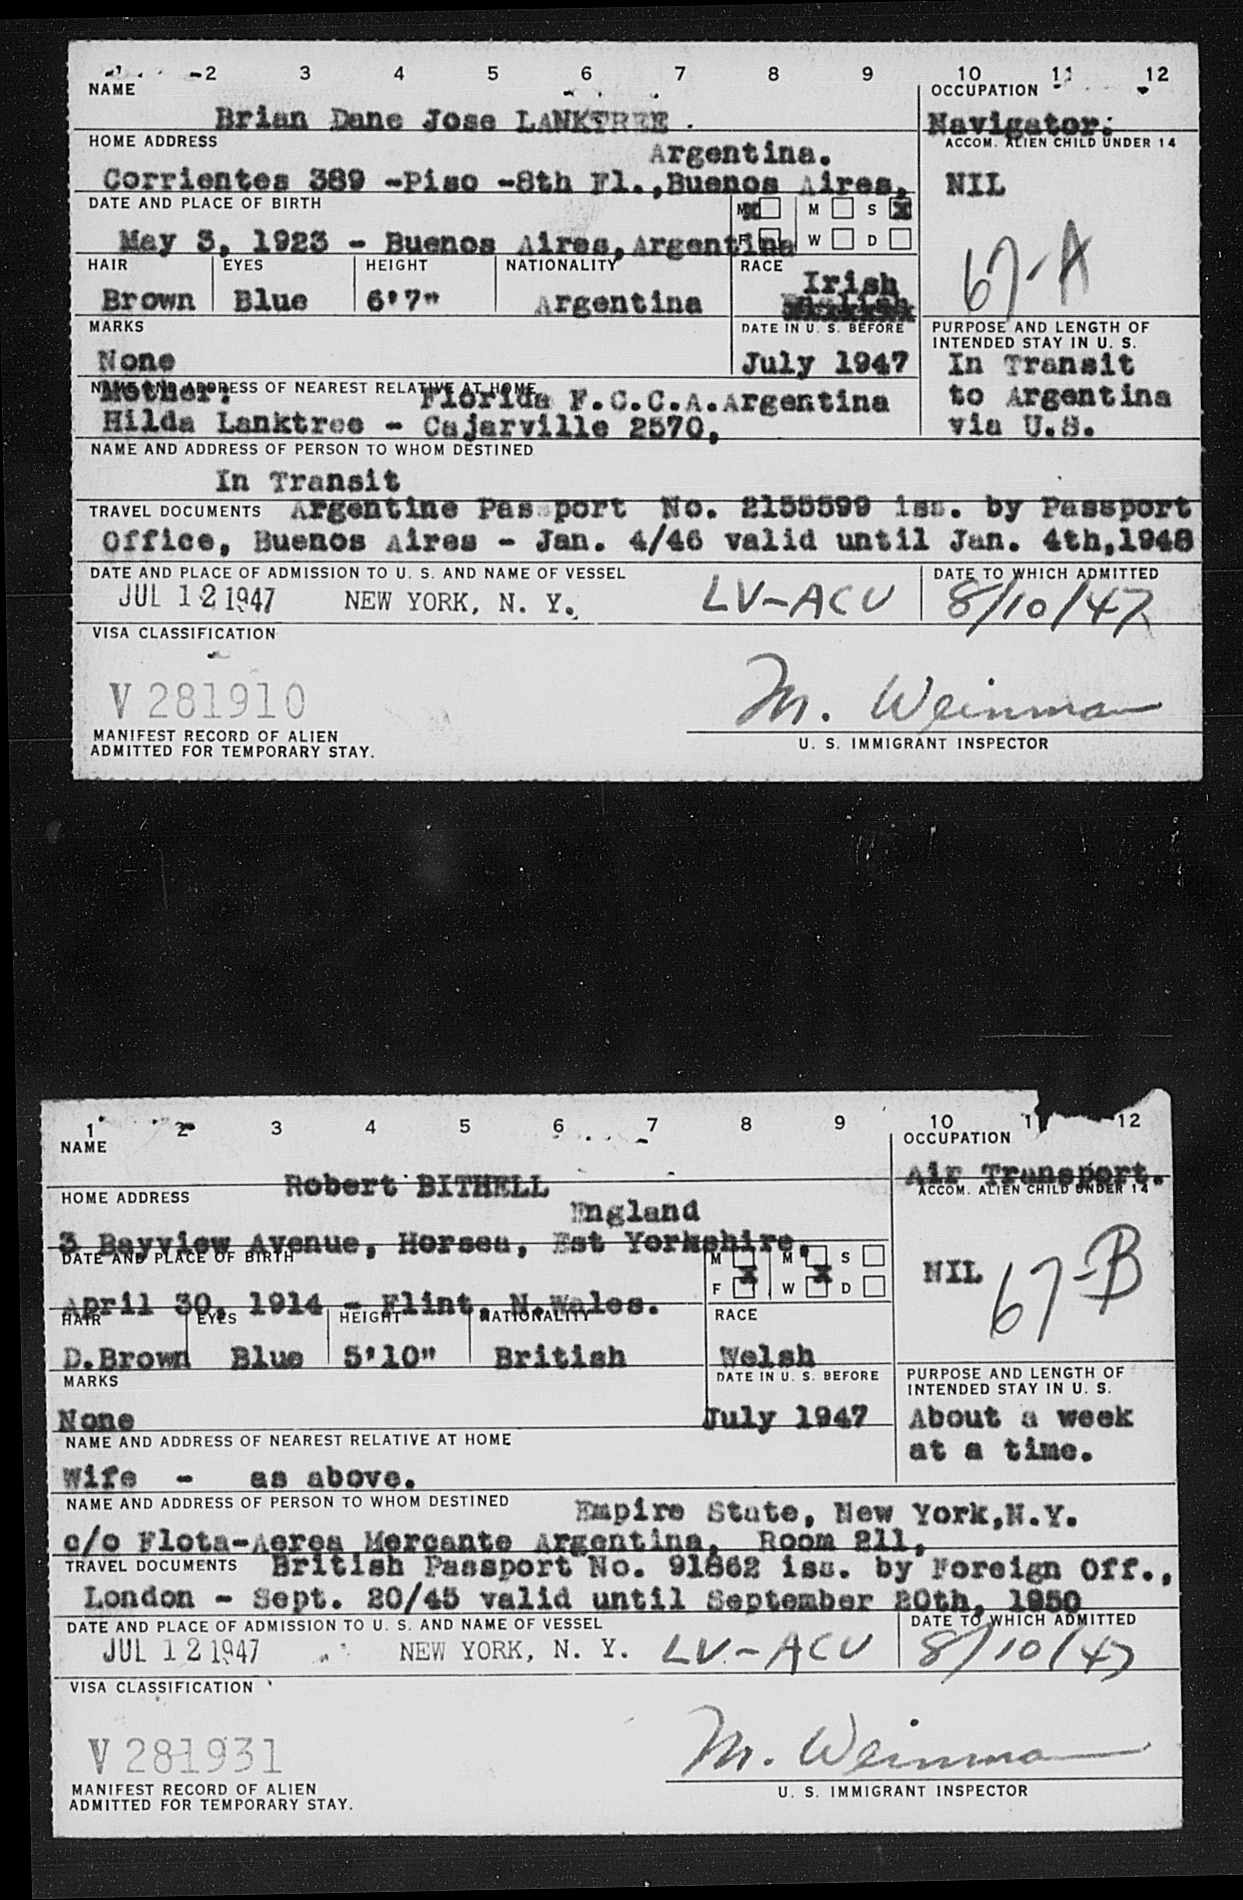 1 2 3 4 5 6 7 8 9 10 11 12
NAME
OCCUPATION
Brian Dane Jose LANKTREE.
Navigator.
HOME ADDRESS
ACCOM. ALIEN CHILD UNDER 14
Argentina.
Corrientes 389 -Piso -8th Fl.,Buenos Aires,
NIL
DATE AND PLACE OF BIRTH
M X M S X
May 3, 1923 - Buenos Aires,Argentina
F W D
67-A
HAIR EYES HEIGHT NATIONALITY RACE
Irish
Brown Blue 6'7" Argentina
MARKS
DATE IN U. S. BEFORE
PURPOSE AND LENGTH OF
INTENDED STAY IN U. S.
None
July 1947
In Transit
NAME AND ADDRESS OF NEAREST RELATIVE AT HOME
Mother: Florida F.C.C.A.Argentina
to Argentina
Hilda Lanktree - Cajarville 2570,
via U.S.
NAME AND ADDRESS OF PERSON TO WHOM DESTINED
In Transit
TRAVEL DOCUMENTS Argentine Passport No. 2155599 iss. by Passport
Office, Buenos Aires - Jan. 4/46 valid until Jan. 4th,1948
DATE AND PLACE OF ADMISSION TO U. S. AND NAME OF VESSEL
DATE TO WHICH ADMITTED
JUL 12 1947 NEW YORK, N. Y. LV-ACU 8/10/47
VISA CLASSIFICATION
V 281910
M. Weinman
MANIFEST RECORD OF ALIEN
ADMITTED FOR TEMPORARY STAY.
U. S. IMMIGRANT INSPECTOR
1 2 3 4 5 6 7 8 9 10 1 12
NAME
OCCUPATION
Robert BITHELL
Air Transport.
HOME ADDRESS
ACCOM. ALIEN CHILD UNDER 14
England
3 Bayview Avenue, Horsea, Est Yorkshire.
DATE AND PLACE OF BIRTH
M M S
NIL
67-B
F X W X D
April 30, 1914 - Flint, N.Wales.
HAIR EYES HEIGHT NATIONALITY RACE
D.Brown Blue 5'10" British Welsh
MARKS
DATE IN U. S. BEFORE
PURPOSE AND LENGTH OF
INTENDED STAY IN U. S.
None
July 1947
About a week
NAME AND ADDRESS OF NEAREST RELATIVE AT HOME
at a time.
Wife - as above.
NAME AND ADDRESS OF PERSON TO WHOM DESTINED
Empire State, New York,N.Y.
c/o Flota-Aerea Mercante Argentina, Room 211,
TRAVEL DOCUMENTS British Passport No. 91862 iss. by Foreign Off.,
London - Sept. 20/45 valid until September 20th, 1950
DATE AND PLACE OF ADMISSION TO U. S. AND NAME OF VESSEL
DATE TO WHICH ADMITTED
JUL 12 1947 NEW YORK, N. Y. LV-ACU 8/10/47
VISA CLASSIFICATION
V 281931
M. Weinman
MANIFEST RECORD OF ALIEN
ADMITTED FOR TEMPORARY STAY.
U. S. IMMIGRANT INSPECTOR